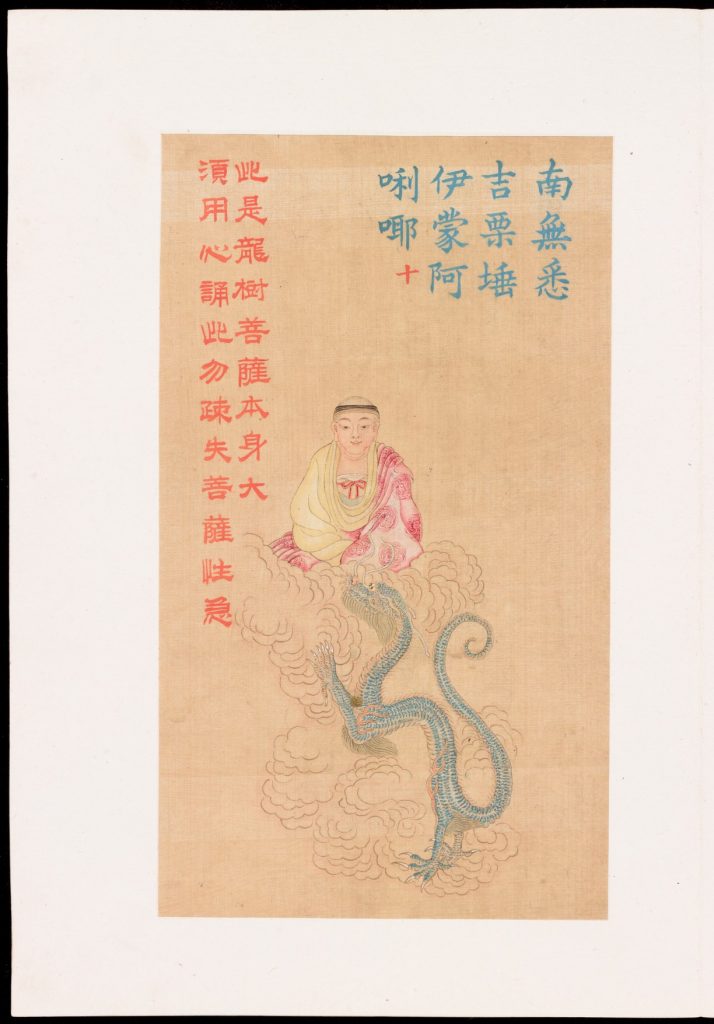 南無悉
吉栗埵
伊蒙阿
唎耶十
此是龍樹菩薩本身大
須用心誦此勿疎失菩薩性急